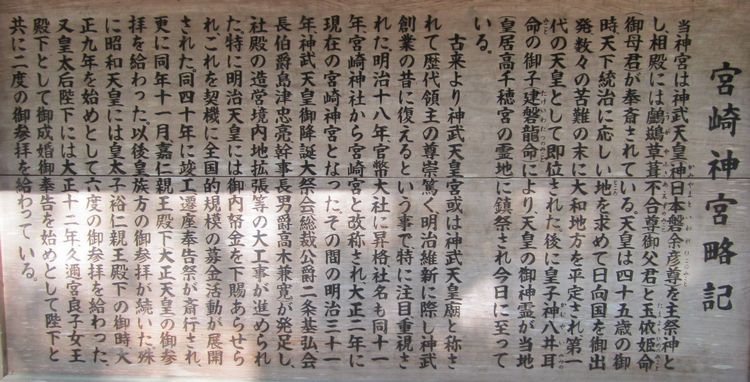 宮崎神宮略記
当神宮は神武天皇神日本磐余彦尊を主祭神と
し、相殿には鸕鷀草葺不合尊御父君と玉依姫命
(御母君が奉斎されている。天皇は四十五歳の御
時天下統治に応しい地を求めて日向国を御出
発数々の苦難の末に大和地方を平定され第一
代の天皇として即位された後に皇子神八井耳
命の御子建磐龍命により、天皇の御神霊が当地
(皇居高千穂宮の霊地に鎮祭され今日に至って
いる。
古来より神武天皇宮或は神武天皇廟と称さ
れて歴代領主の尊崇篤く、明治維新に際し神武
創業の昔に復えるという事で特に注目、重視さ
れた。明治十八年官幣大社に昇格社名も同十一
年宮崎神社から宮崎宮と改称され大正二年に
現在の宮崎神宮となった。その間の明治三十一
年神武天皇御降誕大祭会総裁公爵二条基弘会
長伯爵島津忠亮幹事長男爵高木兼寛が発足し、
社殿の造営境内地拡張等の大工事が進められ
た。特に明治天皇には御内帑金を下賜あらせら
れ、これを契機に全国的規模の募金活動が展開
された。同四十年に竣工、遷座奉告祭が斎行され、
更に同年十一月嘉仁親王殿下大正天皇の御参
拝を給わった。以後皇族方の御参拝が続いた。殊
に昭和天皇には皇太子裕仁親王殿下の御時大
正九年を始めとして六度の御参拝を給わった。
又皇太后陛下には大正十二年久邇宮良子女王
殿下として御成婚御奉告を始めとして陛下と
共に二度の御参拝を給わっている。